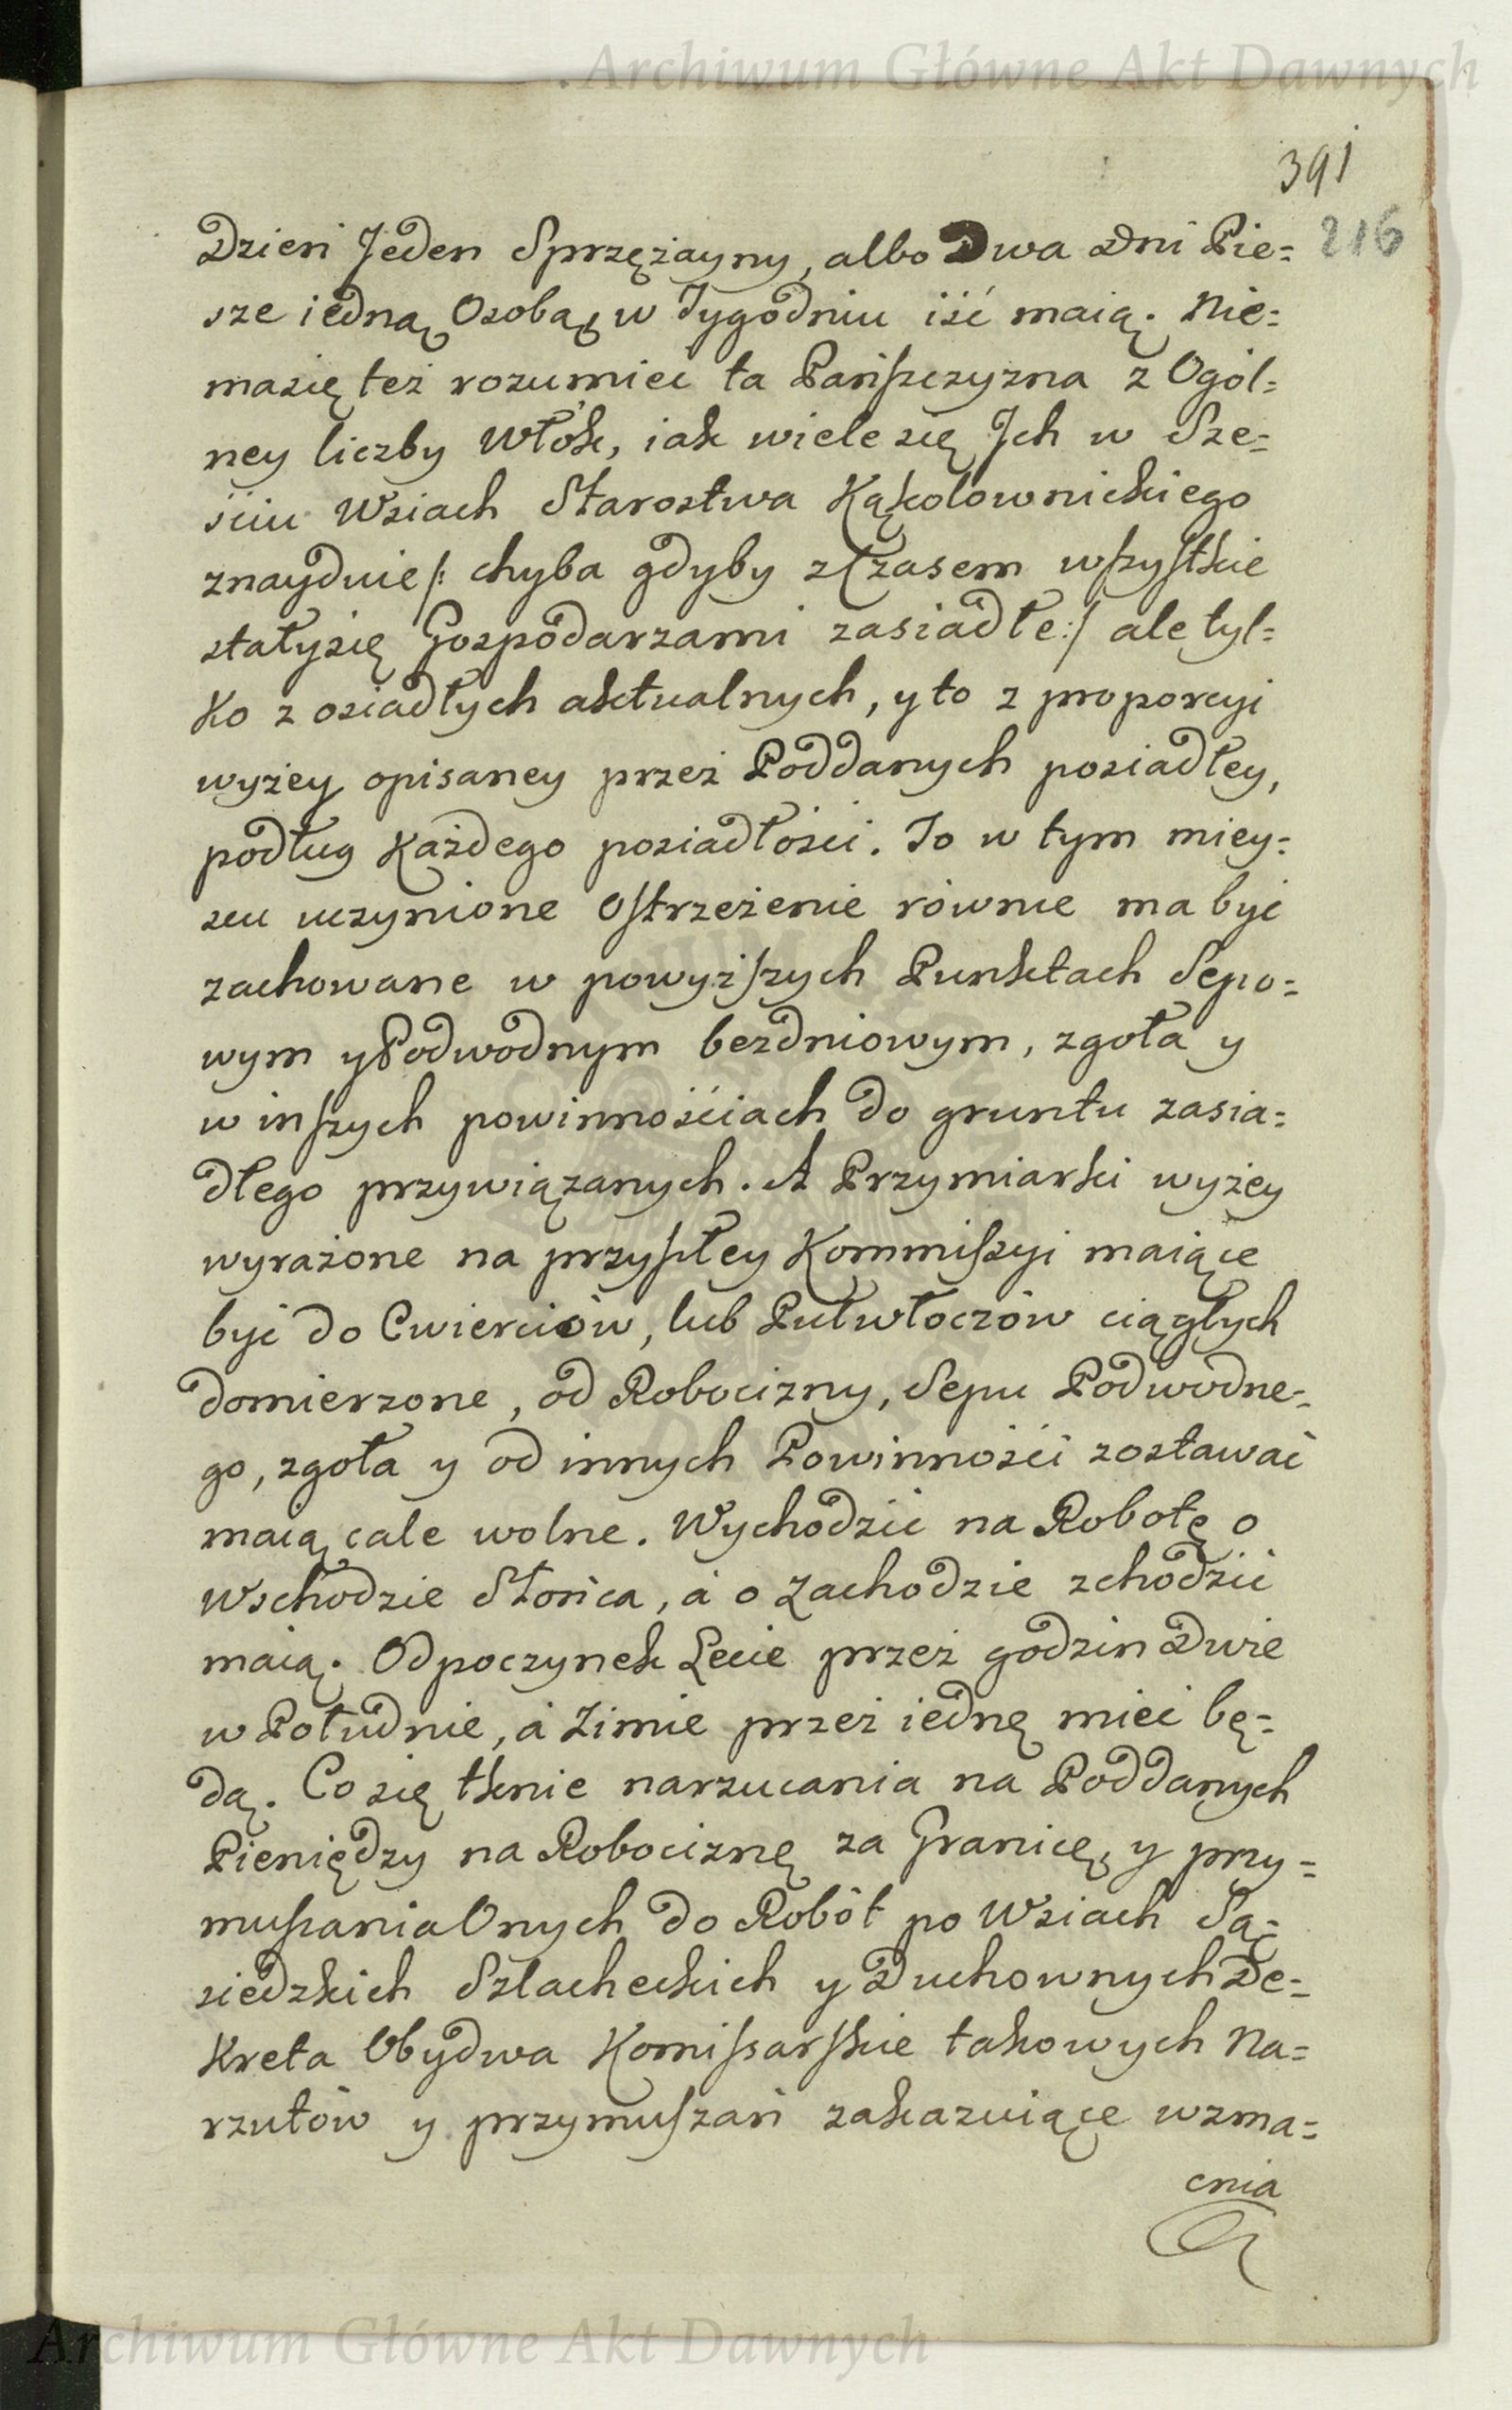 Archiwum Główne Akt Dawnych
391
216
Dzień Jeden Sprzężayny, albo Dwa Dni Pie=
sze iedną Osobą, w Tygodniu iść maią. Nie=
masię też rozumieć ta Pańszczyzna z Ogól=
ney liczby Włók, iak wiele się Jch w Sze=
ściu Wsiach Starostwa Kąkolownickiego
znayduie /: chyba gdyby z Czasem wszystkie
stałysię Gospodarzami zasiadłe :/ ale tyl=
ko z osiadłych aktualnych, y to z proporcyi
wyżey opisaney przez Poddanych posiadłey,
podług Każdego posiadłości. To w tym miey=
scu uczynione Ostrzeżenie równie ma być
zachowane w powyższych Punktach Sepo=
wym y Podwodnym bezdniowym, zgoła y
w inszych powinnościach do gruntu zasia=
dłego przywiązanych. A Przymiarki wyżey
wyrażone na przyszłey Kommiszyi maiące
być do Cwierciów, lub Pułwłoczów ciągłych
domierzone, od Robocizny, Sepu Podwodne=
go, zgoła y od innych Powinności zostawać
maią cale wolne. Wychodzić na Robotę o
Wschodzie Słońca, á o Zachodzie zchodzić
maią. Odpoczynek Lecie przez godzin Dwie
w Południe, á Zimie przez iednę mieć bę=
dą. Co się tknie narzucania na Poddanych
Pieniędzy na Robociznę za Granicę, y przy=
muszania Onych do Robót po Wsiach Są=
siedzkich Szlacheckich y Duchownych De=
kreta Obydwa Komissarskie takowych Na=
rzutów y przymuszań zakazuiące wzma=
cnia
Archiwum Główne Akt Dawnych